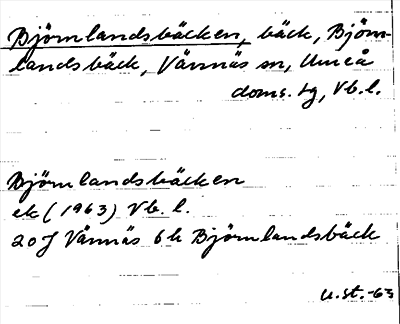 Björnlandsbäcken, bäck, Björn-
landsbäck, Vännäs sn, Umeå
doms. tg, Vb.l.
Björnlandsbäcken
ek (1963) Vb. l.
20J Vännäs 6h Björnlandsbäck
u.st.-63